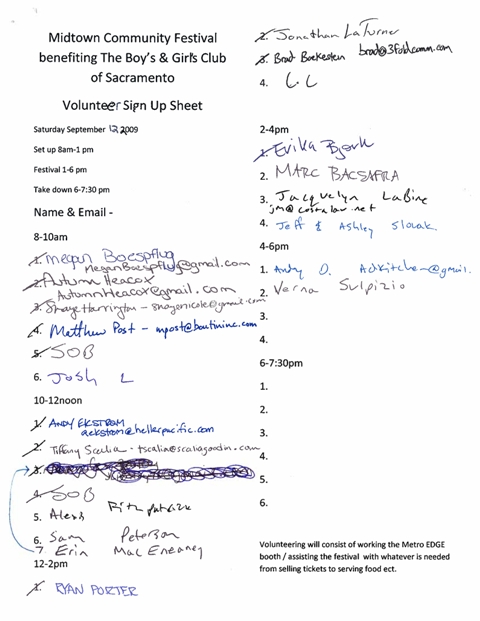 Midtown Community Festival
benefiting The Boy's & Girl's Club
of Sacramento
Volunteer Sign Up Sheet
Saturday September 12, 2009
Set up 8am-1 pm
Festival 1-6 pm
Take down 6-7:30 pm
Name & Email -
8-10am
1. Megan Boespflug
MeganBoespflug@gmail.com
2. Autumn Heacox
AutumnHeacox@gmail.com
3. Shaye Harrington - shayenicole@gmail.com
4. Matthew Post - mpost@boutininc.com
5. SOB
6. Josh L
10-12noon
1. ANDY EKSTROM
aekstrom@hellerpacific.com
2. Tiffany Scalia - tscalia@scaliagoodin.com
3.
4. SOB
5. Alesh
6. Sam Peterson
7. Erin MacEneaney
12-2pm
1. RYAN PORTER
2. Jonathan LaTurner
3. Brad Boekestein brad@3foldcomm.com
4. L L
2-4pm
1. Erika Bjork
2. MARC
3. Jacquelyn LaBine
jm@costalaw.net
4. Jeff & Ashley Slovak
4-6pm
1. Andy O.
2. Verna Sulpizio
3.
4.
6-7:30pm
1.
2.
3.
4.
5.
6.
Volunteering will consist of working the Metro EDGE
booth / assisting the festival with whatever is needed
from selling tickets to serving food ect.